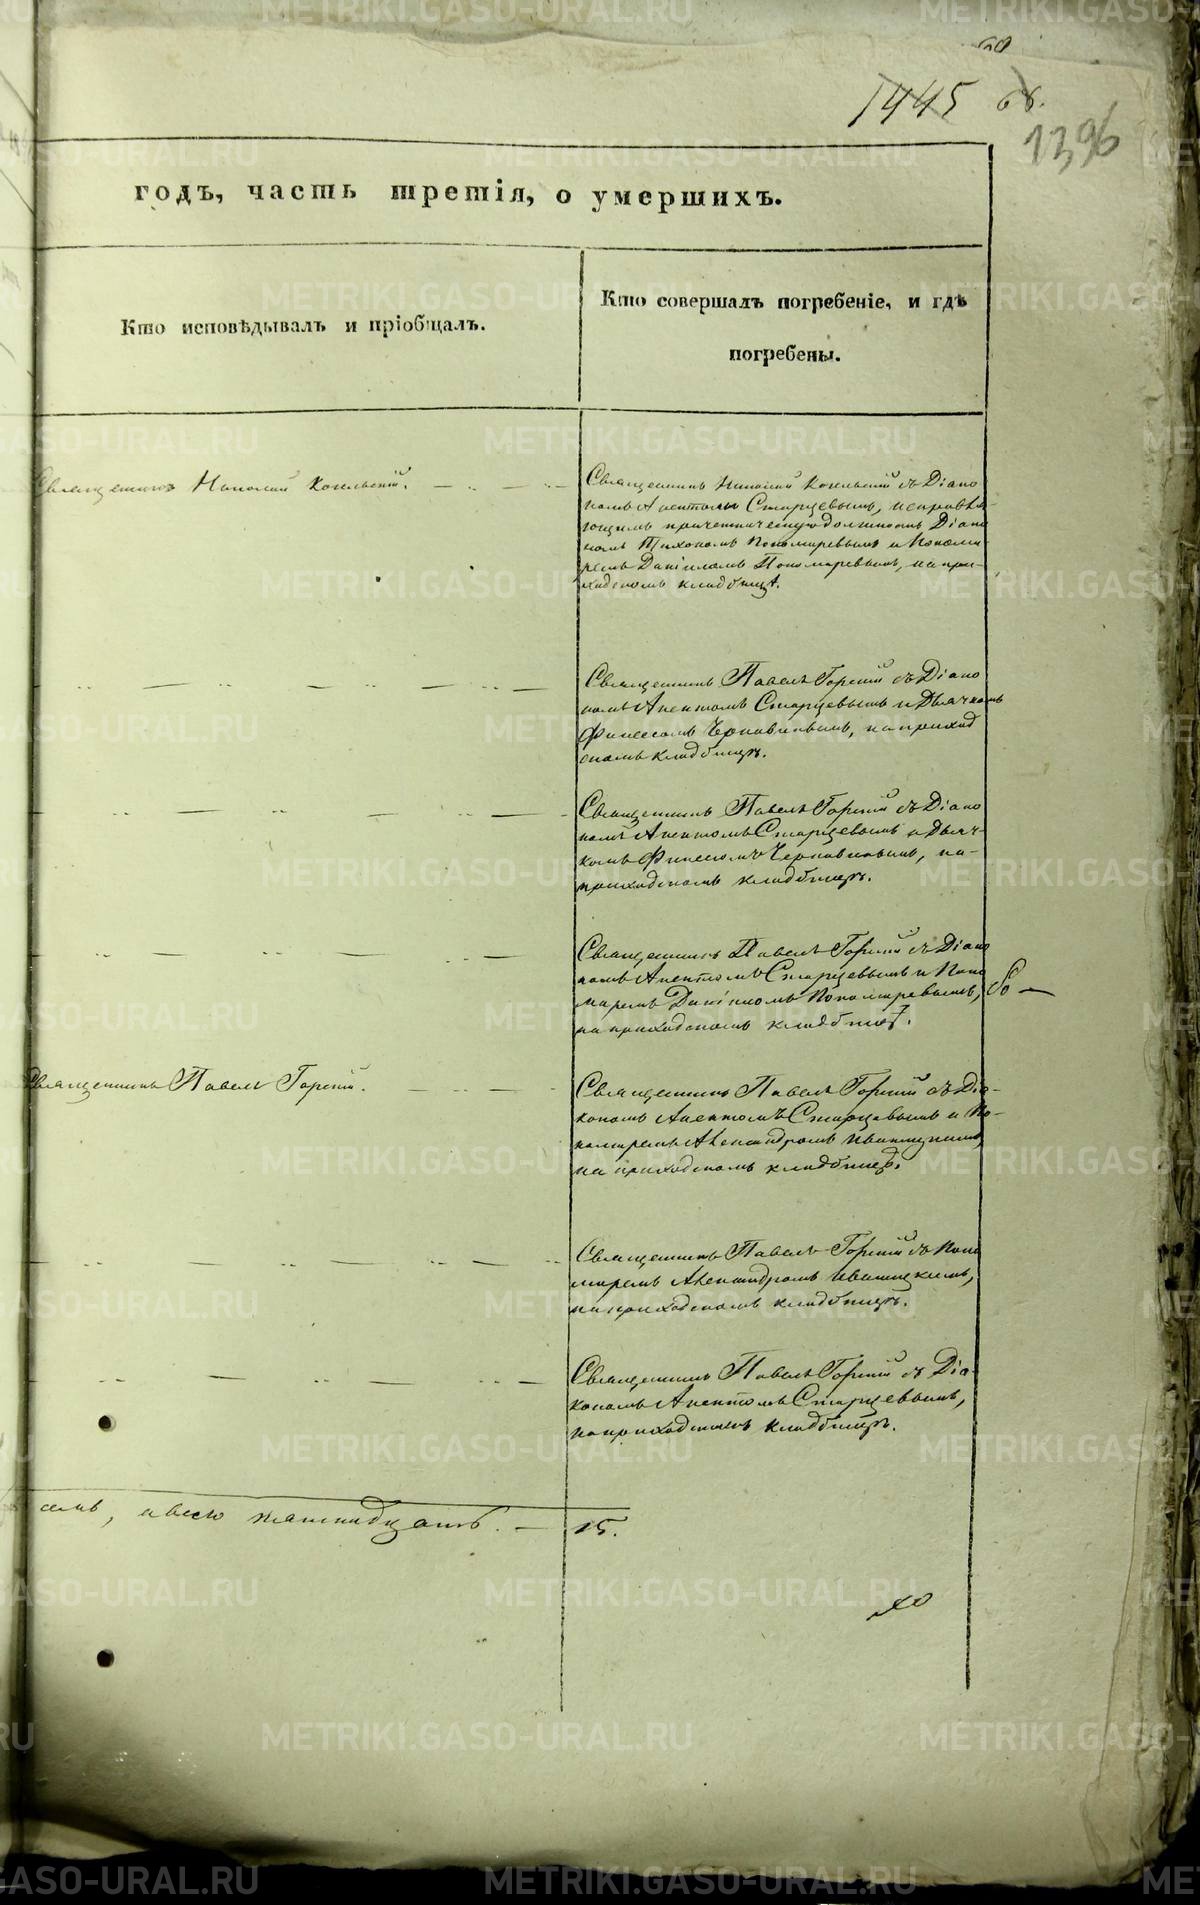 1445
68.
1396
годъ, часть третія, о умершихъ.
Кто исповѣдывалъ и пріобщалъ.
Кто совершалъ погребеніе, и гдѣ
погребены.
Священникъ Николай Кокльскій.
Священникъ Николай Кокльскій съ Діако
номъ Старцевымъ, исправля-
ющимъ причетническую должность Діако
номъ Тихономъ Пономаревымъ и Понома-
ремъ Даніиломъ Пономаревымъ, на при-
ходскомъ кладбищѣ.
Священникъ Павелъ Горскій съ Діако
номъ Старцевымъ и Дьячкомъ
Финеесомъ на приход
скомъ кладбищѣ.
Священникъ Павелъ Горскій съ Діако
номъ Старцевымъ и Дьяч-
комъ Финеесомъ на-
приходскомъ кладбищѣ.
Священникъ Павелъ Горскій съ Діако
номъ Старцевымъ и Поно
маремъ Даніиломъ Пономаревымъ,
на приходскомъ кладбищѣ.
Священникъ Павелъ Горскій.
Священникъ Павелъ Горскій съ Діа-
кономъ Старцевымъ и По-
номаремъ Александромъ Иваницкимъ,
на приходскомъ кладбищѣ.
Священникъ Павелъ Горскій съ Поно
маремъ Александромъ Иваницкимъ,
на приходскомъ кладбищѣ.
Священникъ Павелъ Горскій съ Діа-
кономъ Старцевымъ,
на приходскомъ кладбищѣ.
семь, а всего пятнадцать. — 15.
METRIKI.GASO-URAL.RU